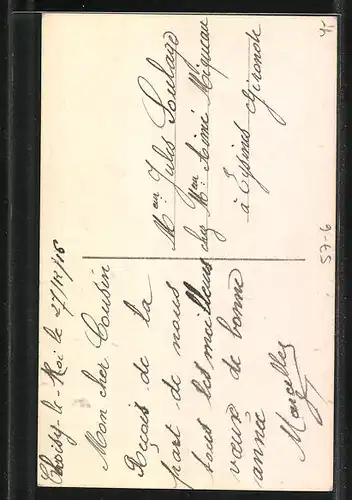 Choisy-le-Roi le 27/12/16
Mon cher Cousin
Reçois de la
part de nous
tous les meilleurs
vœux de bonne
année
Marcelle
Mr Jules Soulage
chez Mr Aimé Mignau
à Eysines Gironde
57-6